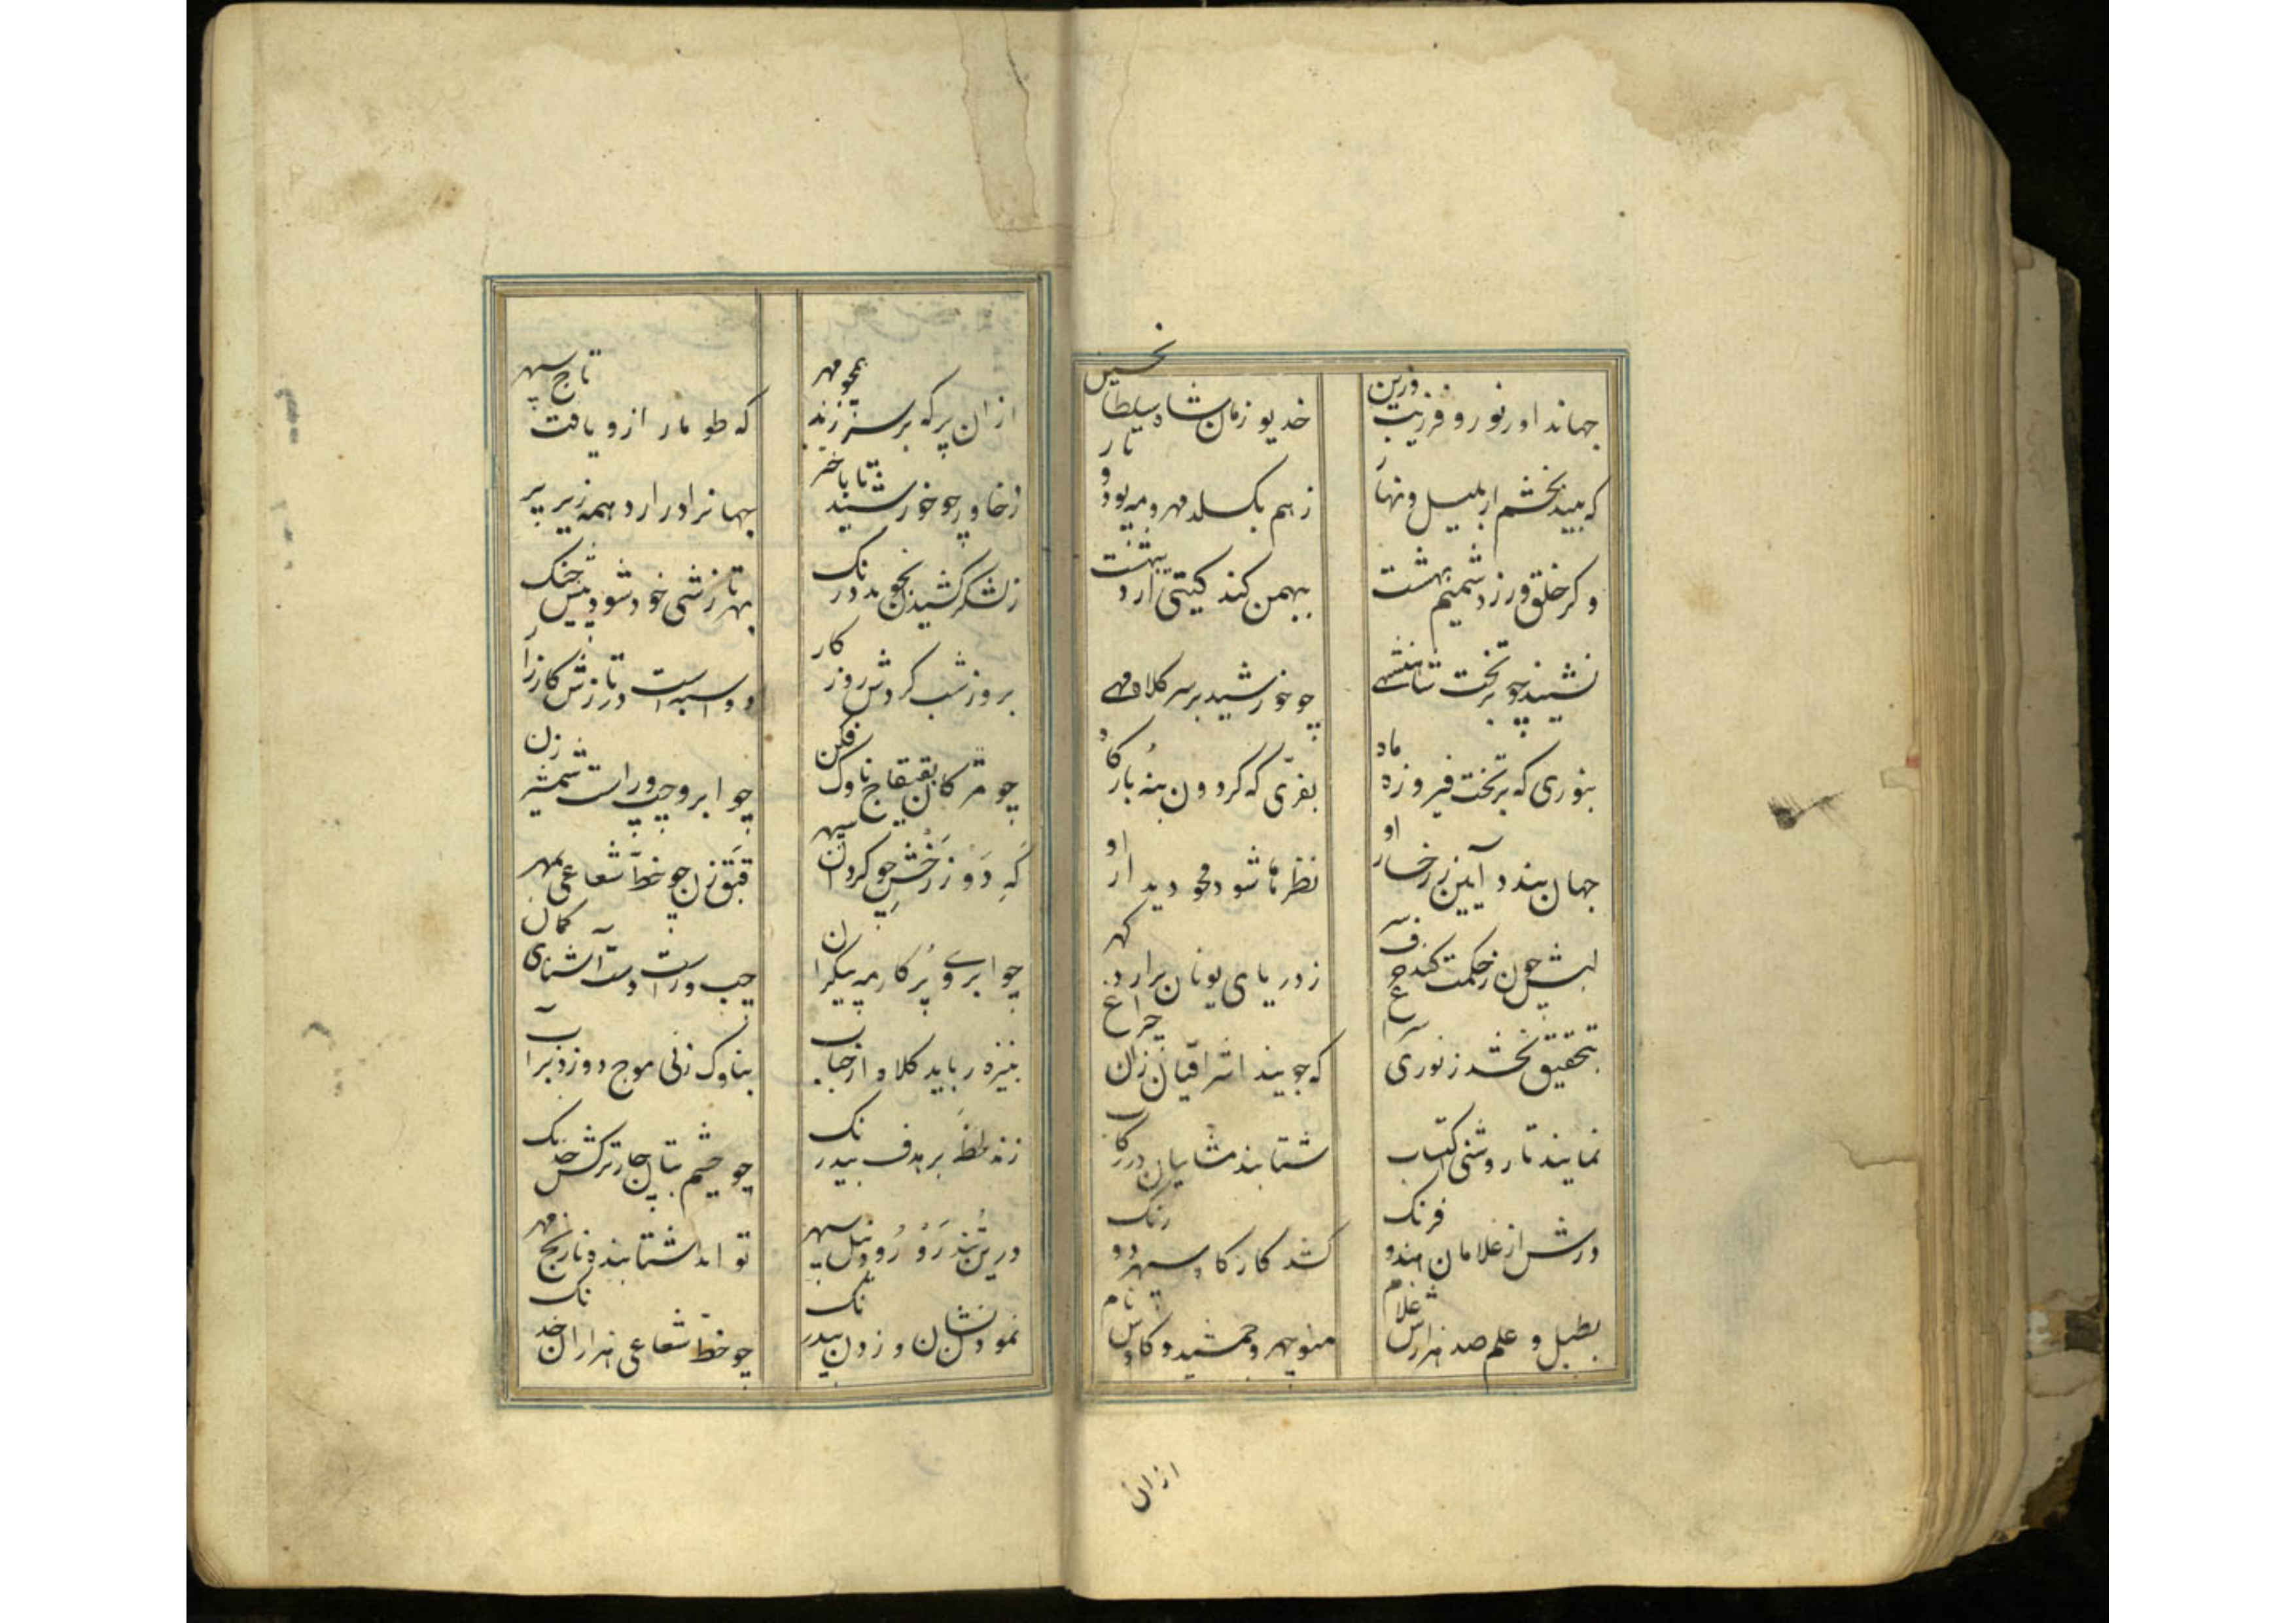 جهاندار نور و فر زیب و زین
خدیو زمان شاه سلطان حسین
که بیند بخشم ار بلیل و نهار
ز هم بگسلد مهر و مه پود و تار
و کر خلق ورزد شمیم بهشت
ببهمن کند کیتی اردیبهشت
نشیند چو بر تخت شاهنشهی
چو خورشید بر سر کلاه مهی
بنوری که بر تخت فیروزه ماه
بفرّی که کردون بنه بارکاه
جهان بندد آیین ز رخسار او
نظرها شود محو دیدار او
لبش چون ز حکمت کند حرف سر
ز دریای یونان برارد کهر
بتحقیق بخشد ز نوری سراغ
که جویند اشراقیان زان چراغ
نمایند تا روشنی اکتساب
شتابند مشاییان در رکاب
درش از غلامان هندو فرنک
کشد کار کاه سپهر دو رنک
بطبل و علم صد هزارش غلام
منوچهر و جمشید و کاوس نام
ازان
ازان پر که بر سر زند همچو مهر
که طومار ازو یافت تاج سپهر
ز خاور چو خورشید تا باختر
جهانرا درارد همه زیر پر
ز لشکر کشیدن نجوید درنک
بهر تازشی خود شود پیش جنک
بروز شب کردش روزکار
دو اسبه است در تازش کارزار
چو مژکان بقیقاج ناوک فکن
چو ابرو چپ و راست شمشیر زن
که دَو ز رخش چو کردان سپهر
قبق زن چو خطّ شعاعی بمهر
چو ابروی پرکار مه پیکران
چپ و راست دست آشنای کمان
بنیزه رباید کلاه از حباب
بناوک زنی موج دوزد بر آب
زند خط بر هدف بیدرنک
چو چشم بتان چار ترکش خدنک
درین تند رَو رُود نیلی سپهر
تواند شتابنده نارنج مهر
نمودن نشان و زدن بیدرنک
چو خطّ شعاعی هزاران خدنک